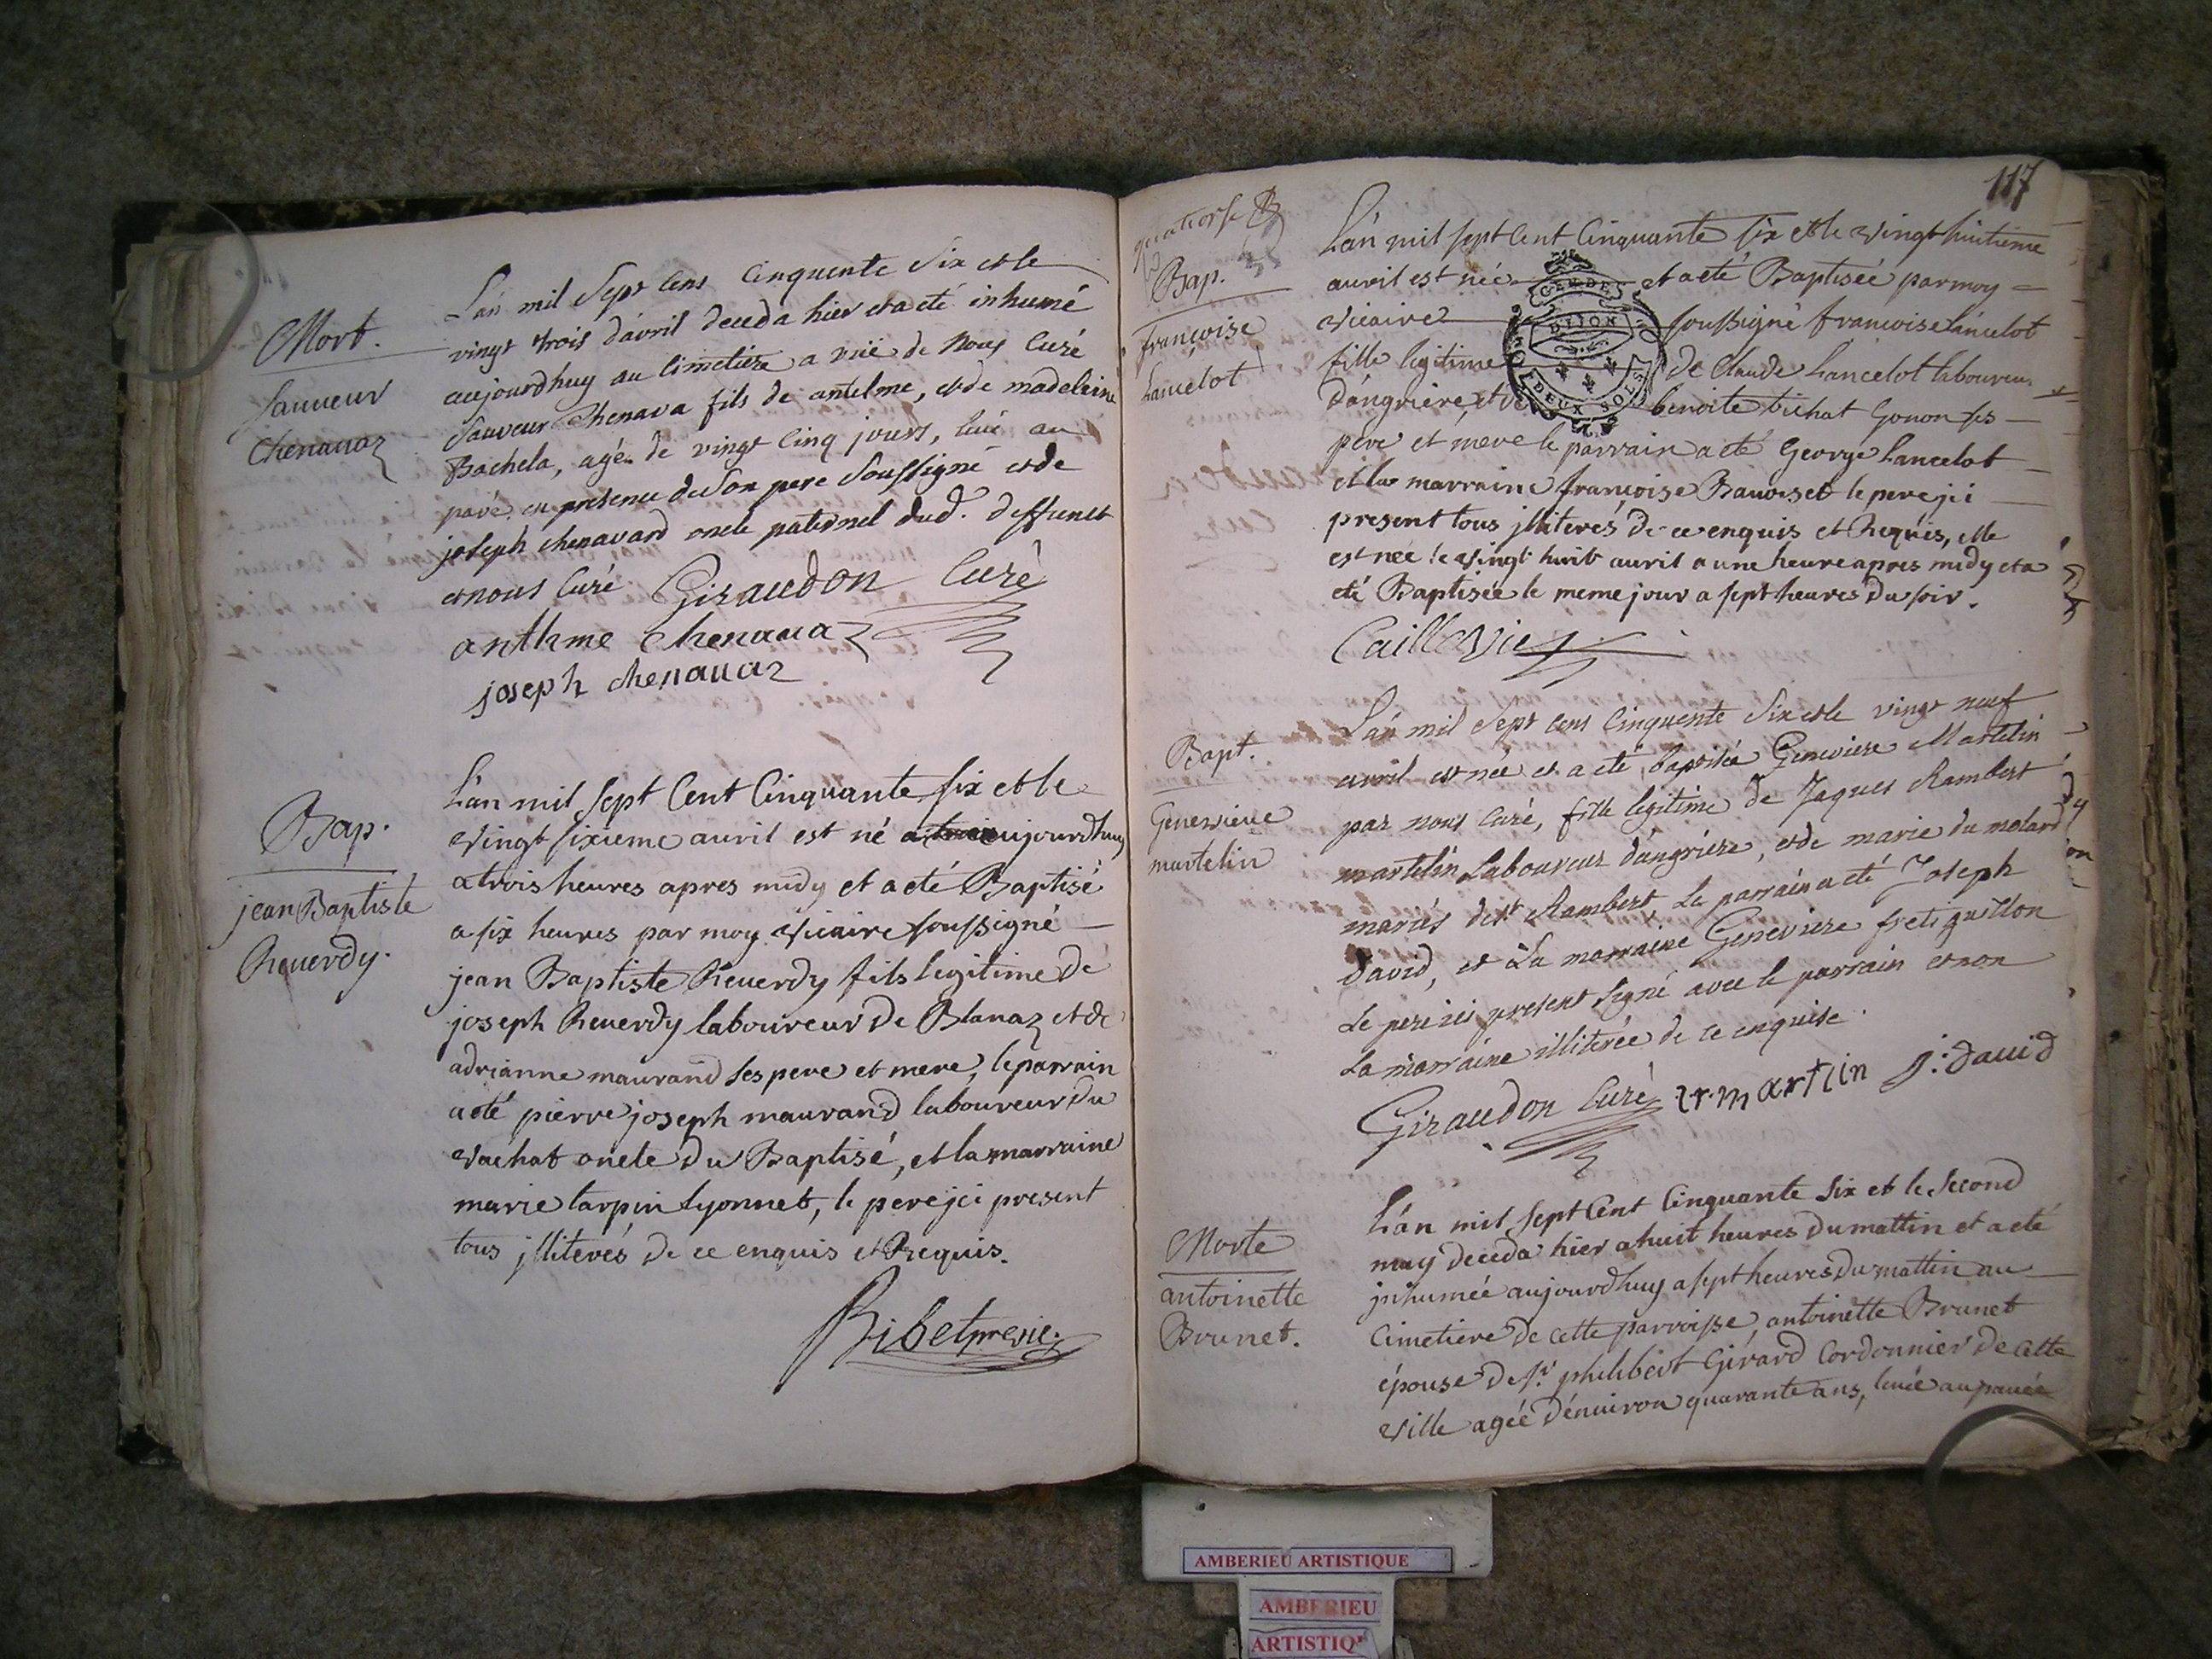 Mort.
Sauveur
Chenavaz
L'an mil Sept Cens Cinquente Six et le
vingt trois d'avril deceda hier et a eté inhumé
aujourdhuy au Cimetiere a vuë de Nous Curé
Sauveur Chenava fils de antelme, et de madeleine
Bachela, agé de vingt Cinq jours, livé au
pavé en presence de Son pere Soussigné et de
joseph chenavard oncle paternel dud. deffunct
et nous Curé Giraudon Curé
anthme Chenavaz
joseph chenavaz
Bap.
jean Baptiste
Reverdy.
L'an mil sept Cent Cinquante six et le
vingt sixieme avril est né aujourdhuy
a trois heures apres midy et a eté Baptisé
a six heures par moy vicaire soussigné
jean Baptiste Reverdy fils legitime de
joseph Reverdy laboureur De Blanaz et de
adrianne maurand ses pere et mere, le parrain
a eté pierre joseph maurand laboureur Du
vachat oncle Du Baptisé, et la marraine
marie tarpin Lyonnet, le pere jci present
tous jlliterés de ce enquis et Requis.
Ribet
117
Bap.
françoise
Lancelot
L'an mil sept Cent Cinquante six et le vingt huitieme
avril est née et a eté Baptisée par moy
vicaire soussigné francoise Lancelot
fille legitime de Claude Lancelot laboureur
d'angriere, et de benoite bichat Gonon ses
pere et mere le parrain a eté George Lancelot
et la marraine françoise Bavoiset le pere jci
present tous jlliterés de ce enquis et Requis, elle
est née le vingt huit avril a une heure apres midy et a
eté Baptisée le meme jour a sept heures Du soir.
GEN DE
DIJON
DEUX SOLS
Bapt.
Genevieve
martelin
L'an mil Sept Cens Cinquente Six et le vingt neuf
avril est née et a eté baptisée Genevieve Martelin
par nous Curé, fille legitime de Jaques Rambert
martelin Laboureur d'angriere, et de marie du molard
mariés dit Rambert Le parrain a eté Joseph
David, et La marraine Genevieve fretiguillon
Le pere ici present Signé avec le parrain et non
La marraine illiterée de ce enquise.
Giraudon Curé j: david
Morte
antoinette
Brunet.
L'an mil sept Cent Cinquante Six et le Second
may deceda hier a huit heures Du mattin et a eté
jnhumée aujourdhuy a sept heures Du mattin au
Cimetiere de Cette parroisse antoinette Brunet
épouse De Sr. philibert Gerard Cordonnier De Cette
ville agée d'environ quarante ans, livée au pavée
AMBERIEU ARTISTIQUE
AMBERIEU
ARTISTIQ